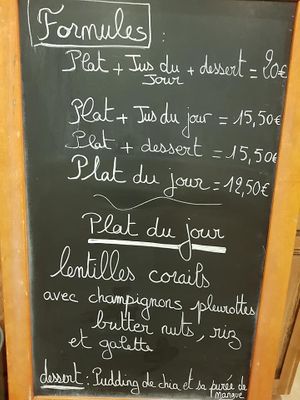 Formules:
Plat + Jus du jour + dessert = 20€
Plat + Jus du jour = 15,50€
Plat + dessert = 15,50€
Plat du jour = 12,50€
Plat du jour
lentilles corails
avec champignons, pleurottes
butter nuts, riz
et galette
dessert: Pudding de chia et sa purée de mangue